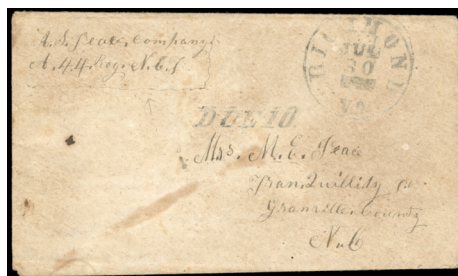 A. S. Peace. Company
A. 44. Reg. N.C.T
RICHMOND
JUL
30
VA.
DUE 10
Mrs. M. E. Peace
TranQuillity Po.
Granville County
N.C